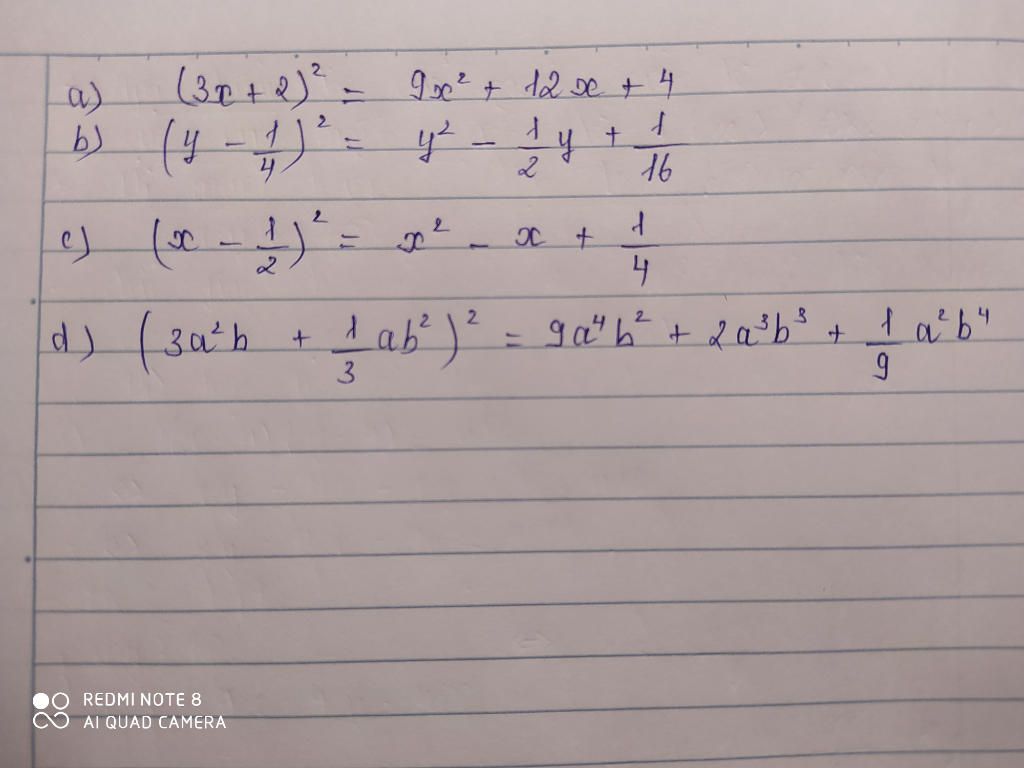 a) (3x + 2)² = 9x² + 12x + 4
b) (y - 1/4)² = y² - 1/2 y + 1/16
c) (x - 1/2)² = x² - x + 1/4
d) (3a²b + 1/3 ab²)² = 9a⁴b² + 2a³b³ + 1/9 a²b⁴
REDMI NOTE 8
AI QUAD CAMERA